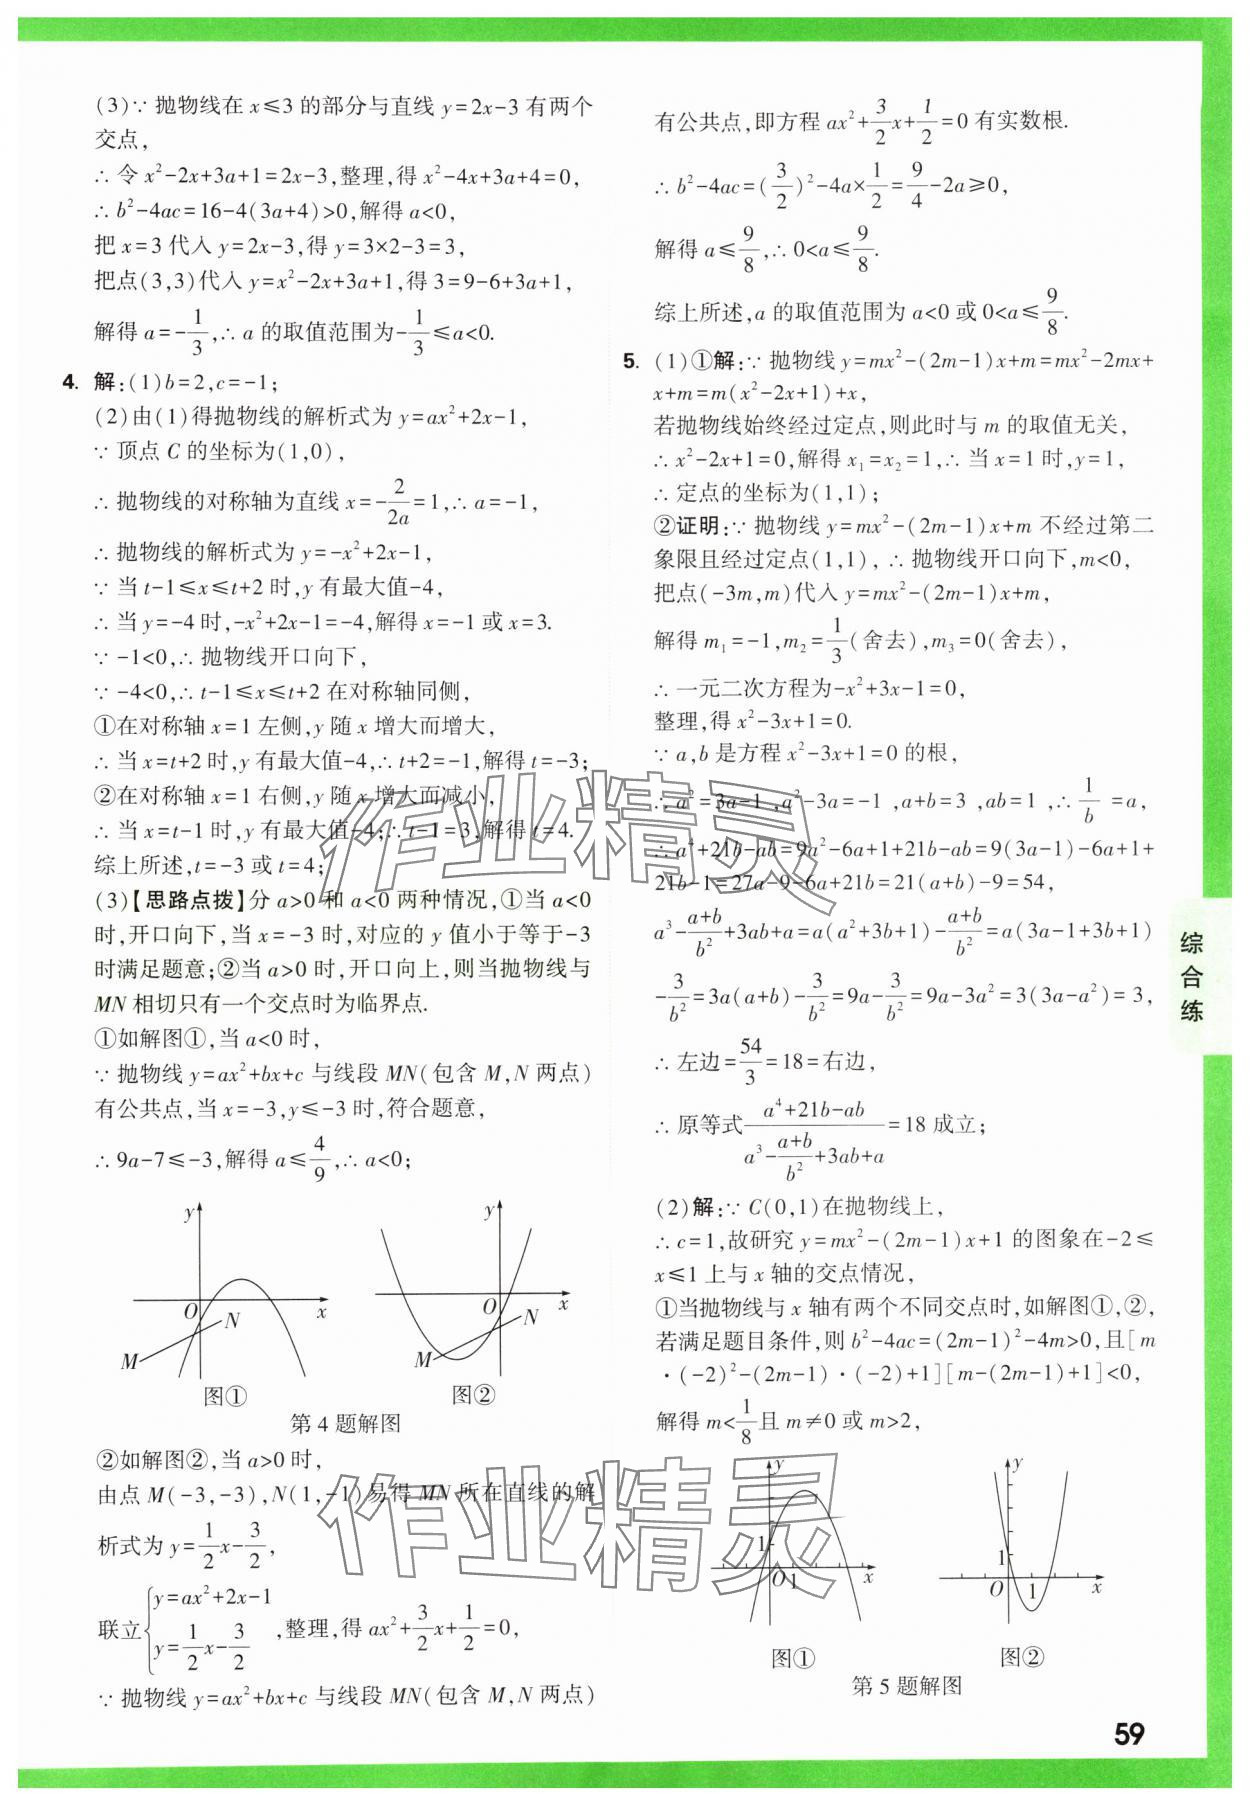 (3)∵ 抛物线在 x≤3 的部分与直线 y=2x-3 有两个
交点,
∴ 令 x²-2x+3a+1=2x-3,整理,得 x²-4x+3a+4=0,
∴ b²-4ac=16-4(3a+4)>0,解得 a<0,
把 x=3 代入 y=2x-3,得 y=3×2-3=3,
把点(3,3)代入 y=x²-2x+3a+1,得 3=9-6+3a+1,
解得 a=-1/3,∴ a 的取值范围为-1/3≤a<0.
4. 解:(1)b=2,c=-1;
(2)由(1)得抛物线的解析式为 y=ax²+2x-1,
∵ 顶点 C 的坐标为(1,0),
∴ 抛物线的对称轴为直线 x=-2/2a=1,∴ a=-1,
∴ 抛物线的解析式为 y=-x²+2x-1,
∵ 当 t-1≤x≤t+2 时,y 有最大值-4,
∴ 当 y=-4 时,-x²+2x-1=-4,解得 x=-1 或 x=3.
∵ -1<0,∴ 抛物线开口向下,
∵ -4<0,∴ t-1≤x≤t+2 在对称轴同侧,
①在对称轴 x=1 左侧,y 随 x 增大而增大,
∴ 当 x=t+2 时,y 有最大值-4,∴ t+2=-1,解得 t=-3;
②在对称轴 x=1 右侧,y 随 x 增大而减小,
∴ 当 x=t-1 时,y 有最大值-4,∴ t-1=3,解得 t=4.
综上所述,t=-3 或 t=4;
(3)【思路点拨】分 a>0 和 a<0 两种情况,①当 a<0
时,开口向下,当 x=-3 时,对应的 y 值小于等于-3
时满足题意;②当 a>0 时,开口向上,则当抛物线与
MN 相切只有一个交点时为临界点.
①如解图①,当 a<0 时,
∵ 抛物线 y=ax²+bx+c 与线段 MN(包含 M,N 两点)
有公共点,当 x=-3,y≤-3 时,符合题意,
∴ 9a-7≤-3,解得 a≤4/9,∴ a<0;
y
O
N
x
M
图①
y
O
N
x
M
图②
第 4 题解图
②如解图②,当 a>0 时,
由点 M(-3,-3),N(1,-1)易得 MN 所在直线的解
析式为 y=1/2x-3/2,
联立{y=ax²+2x-1
y=1/2x-3/2,整理,得 ax²+3/2x+1/2=0,
∵ 抛物线 y=ax²+bx+c 与线段 MN(包含 M,N 两点)
有公共点,即方程 ax²+3/2x+1/2=0 有实数根.
∴ b²-4ac=(3/2)²-4a×1/2=9/4-2a≥0,
解得 a≤9/8,∴ 0<a≤9/8.
综上所述,a 的取值范围为 a<0 或 0<a≤9/8.
5. (1)①解:∵ 抛物线 y=mx²-(2m-1)x+m=mx²-2mx+
x+m=m(x²-2x+1)+x,
若抛物线始终经过定点,则此时与 m 的取值无关,
∴ x²-2x+1=0,解得 x₁=x₂=1,∴ 当 x=1 时,y=1,
∴ 定点的坐标为(1,1);
②证明:∵ 抛物线 y=mx²-(2m-1)x+m 不经过第二
象限且经过定点(1,1),∴ 抛物线开口向下,m<0,
把点(-3m,m)代入 y=mx²-(2m-1)x+m,
解得 m₁=-1,m₂=1/3(舍去),m₃=0(舍去),
∴ 一元二次方程为-x²+3x-1=0,
整理,得 x²-3x+1=0.
∵ a,b 是方程 x²-3x+1=0 的根,
∴ a²=3a-1,a²-3a=-1,a+b=3,ab=1,∴ 1/b=a,
∴ a⁴+21b-ab=9a²-6a+1+21b-ab=9(3a-1)-6a+1+
21b-1=27a-9-6a+21b=21(a+b)-9=54,
a³-(a+b)/b²+3ab+a=a(a²+3b+1)-(a+b)/b²=a(3a-1+3b+1)
-3/b²=3a(a+b)-3/b²=9a-3/b²=9a-3a²=3(3a-a²)=3,
∴ 左边=54/3=18=右边,
∴ 原等式(a⁴+21b-ab)/(a³-(a+b)/b²+3ab+a)=18 成立;
(2)解:∵ C(0,1)在抛物线上,
∴ c=1,故研究 y=mx²-(2m-1)x+1 的图象在-2≤
x≤1 上与 x 轴的交点情况,
①当抛物线与 x 轴有两个不同交点时,如解图①,②,
若满足题目条件,则 b²-4ac=(2m-1)²-4m>0,且[m
·(-2)²-(2m-1)·(-2)+1][m-(2m-1)+1]<0,
解得 m<1/8且 m≠0 或 m>2,
y
1
O
1
x
图①
y
1
O
1
x
图②
第 5 题解图
综合练
59
作业精灵
作业精灵